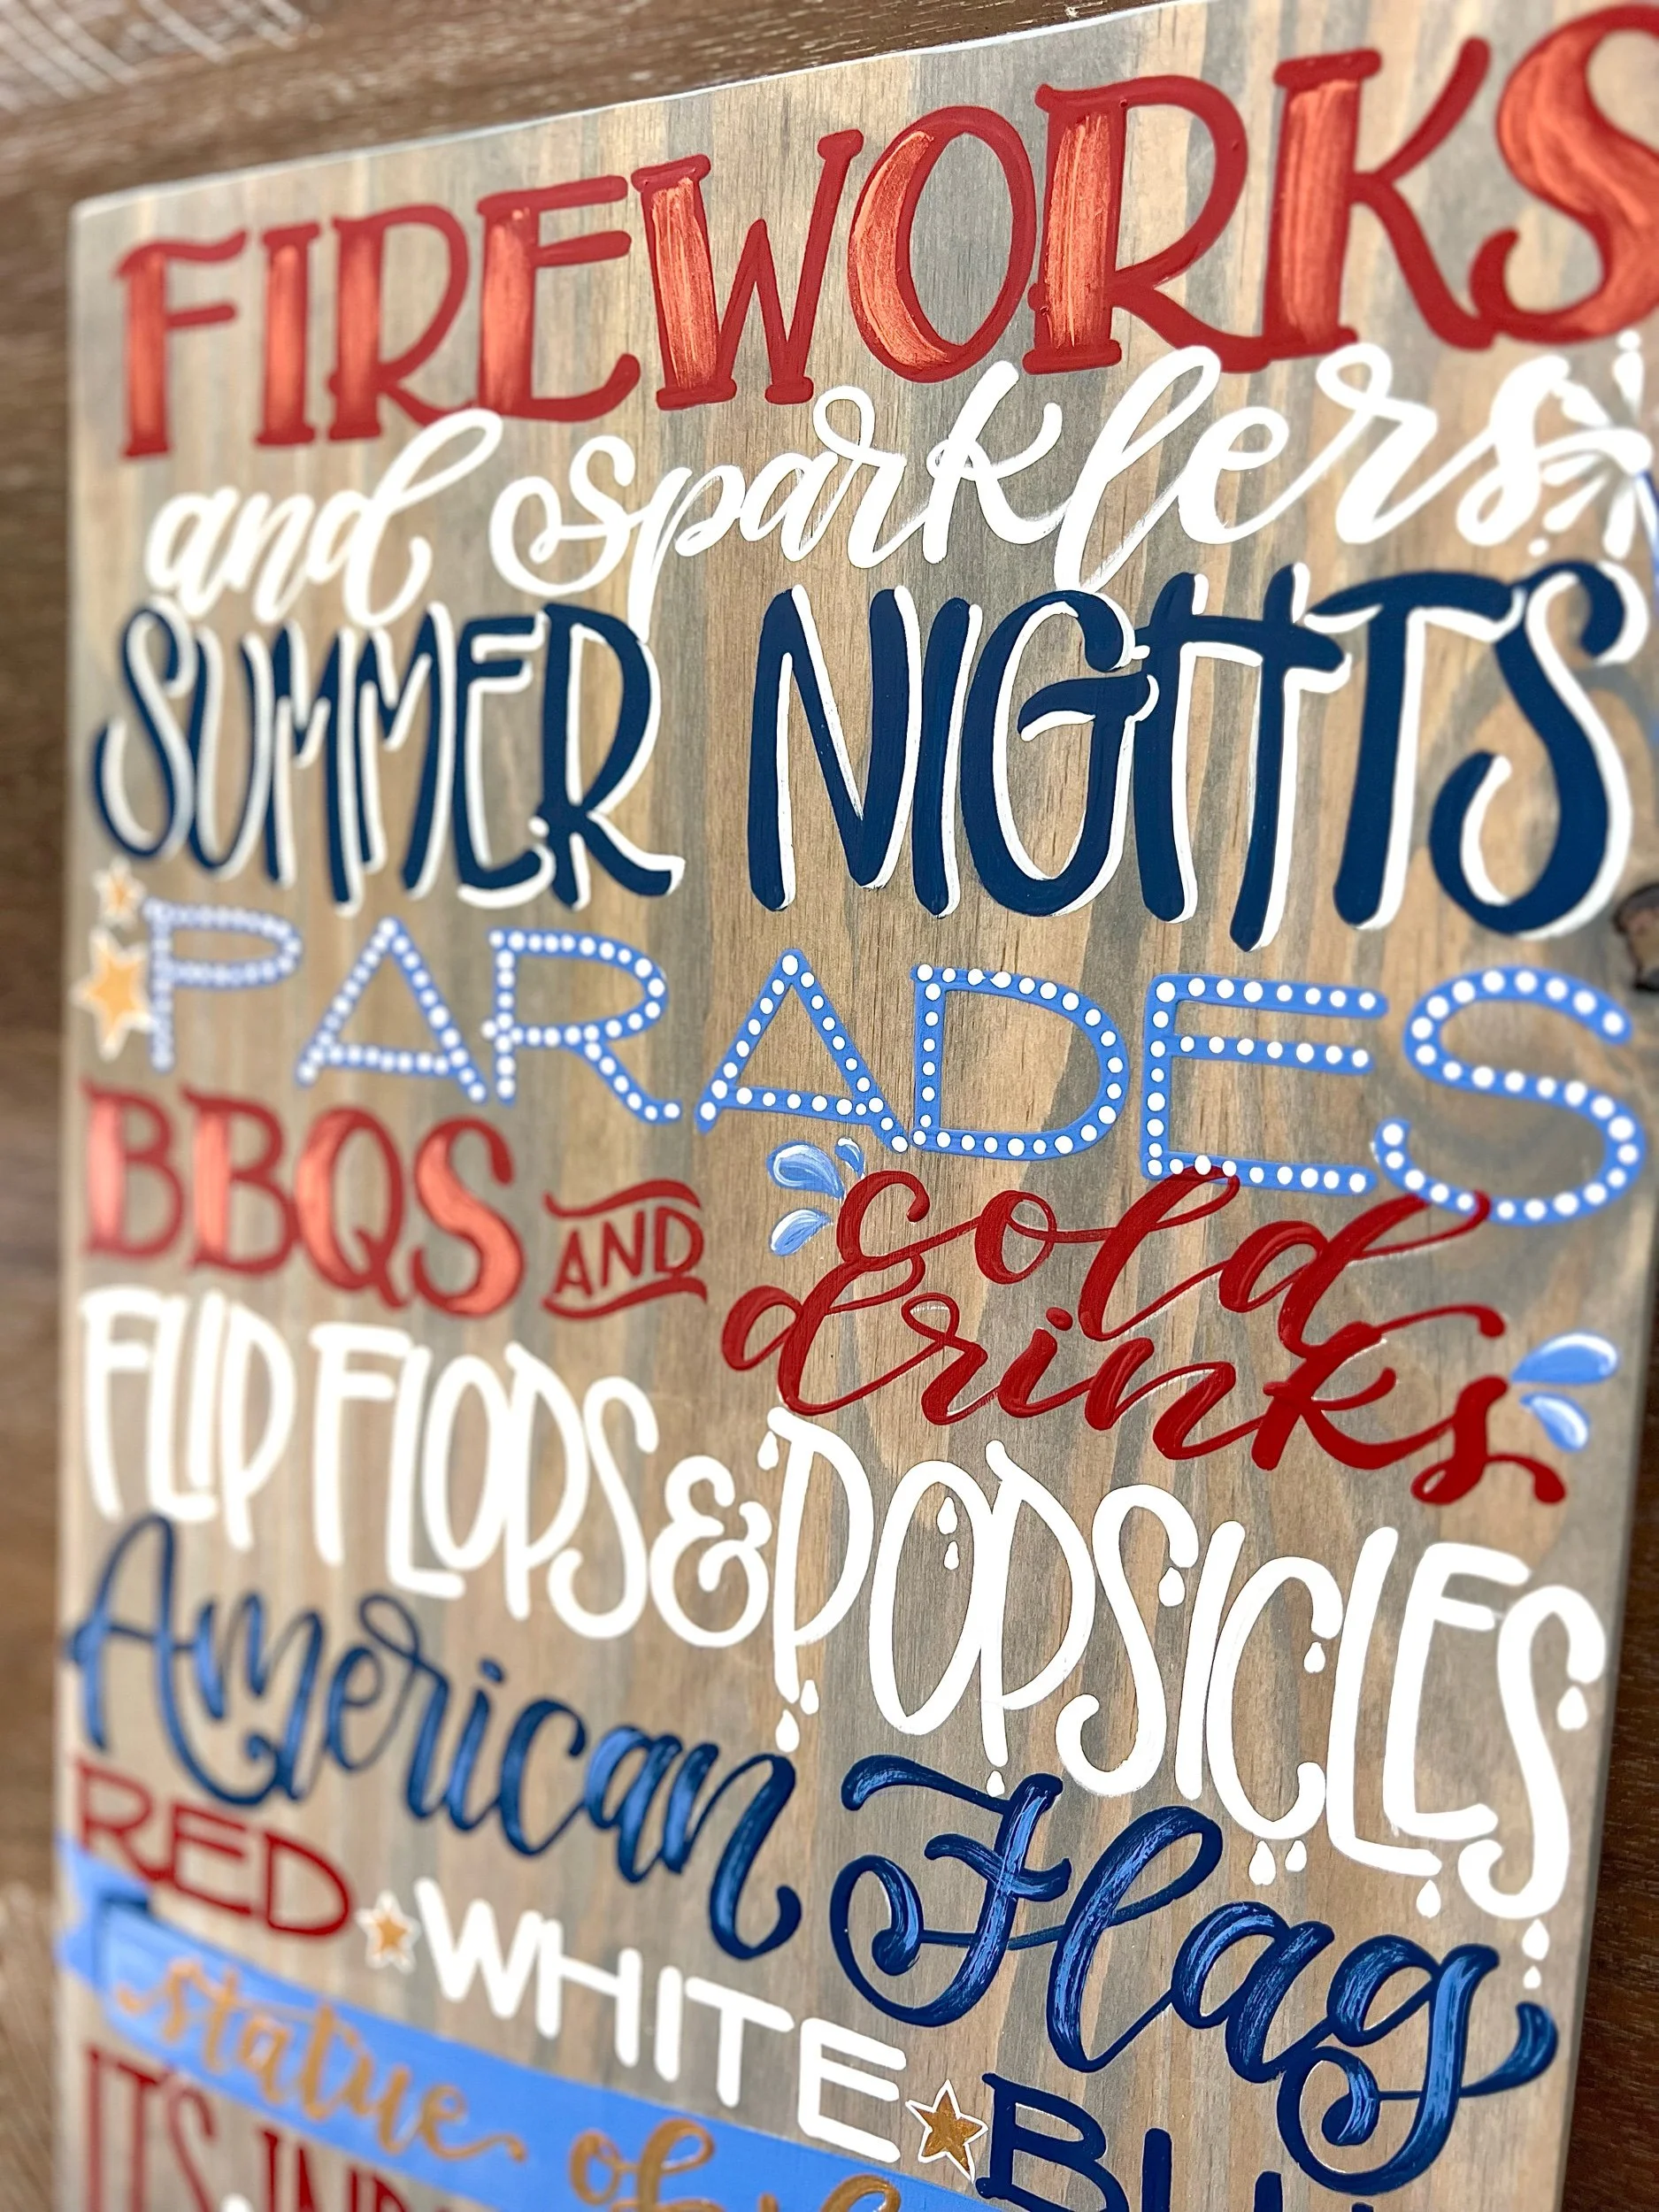 FIREWORKS
and sparklers
SUMMER NIGHTS
PARADES
BBQS AND cold drinks
FLIP FLOPS & POPSICLES
American Flag
RED WHITE
statue of
IT'S